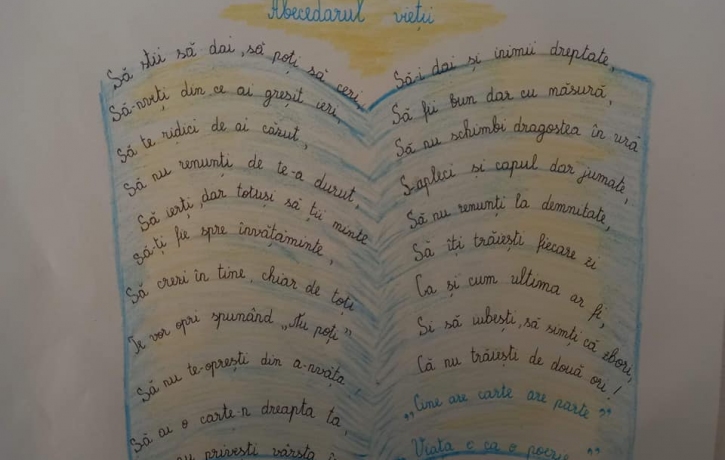 Abecedarul vieții
Să știi să dai, să poți să ceri,
Să-nveți din ce ai greșit ieri,
Să te ridici de ai căzut,
Să nu renunți de te-a durut,
Să ierți, dar totuși să ții minte
Să-ți fie spre învățăminte,
Să crezi în tine, chiar de toți
Te vor opri spunând „Nu poți”
Să nu te-oprești din a-nvăța,
Să ai o carte-n dreapta ta,
privești vârsta
Să-i dai și inimii dreptate,
Să fii bun dar cu măsură,
Să nu schimbi dragostea în ură
S-apleci și capul dar jumate,
Să nu renunți la demnitate,
Să îți trăiești fiecare zi
Ca și cum ultima ar fi,
Și să iubești, să simți că zbori,
Că nu trăiești de două ori!
„Cine are carte are parte”
„Viața e ca o